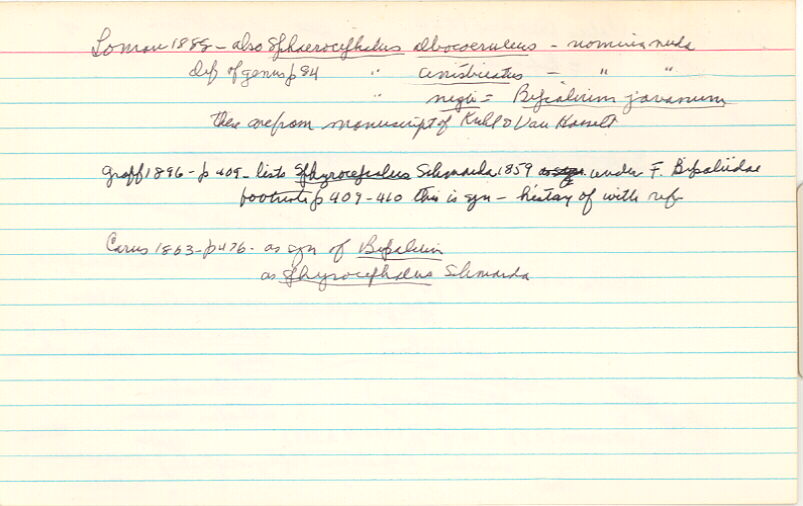 Loman 1888 - also Sphaerocephalus albocoeruleus - nomina nuda
dif of genus p 84 " " - " "
" = Bipalium javanum
these are from manuscript of Kuhl & Van Hasselt
Graff 1896 - p 409 - lists Sphyrocephalus Schmarda 1859 under F. Bipaliidae
footnote p 409-410 this is syn - history of with ref
Carus 1863 - p 476 - as syn of Bipalium
as Sphyrocephalus Schmarda